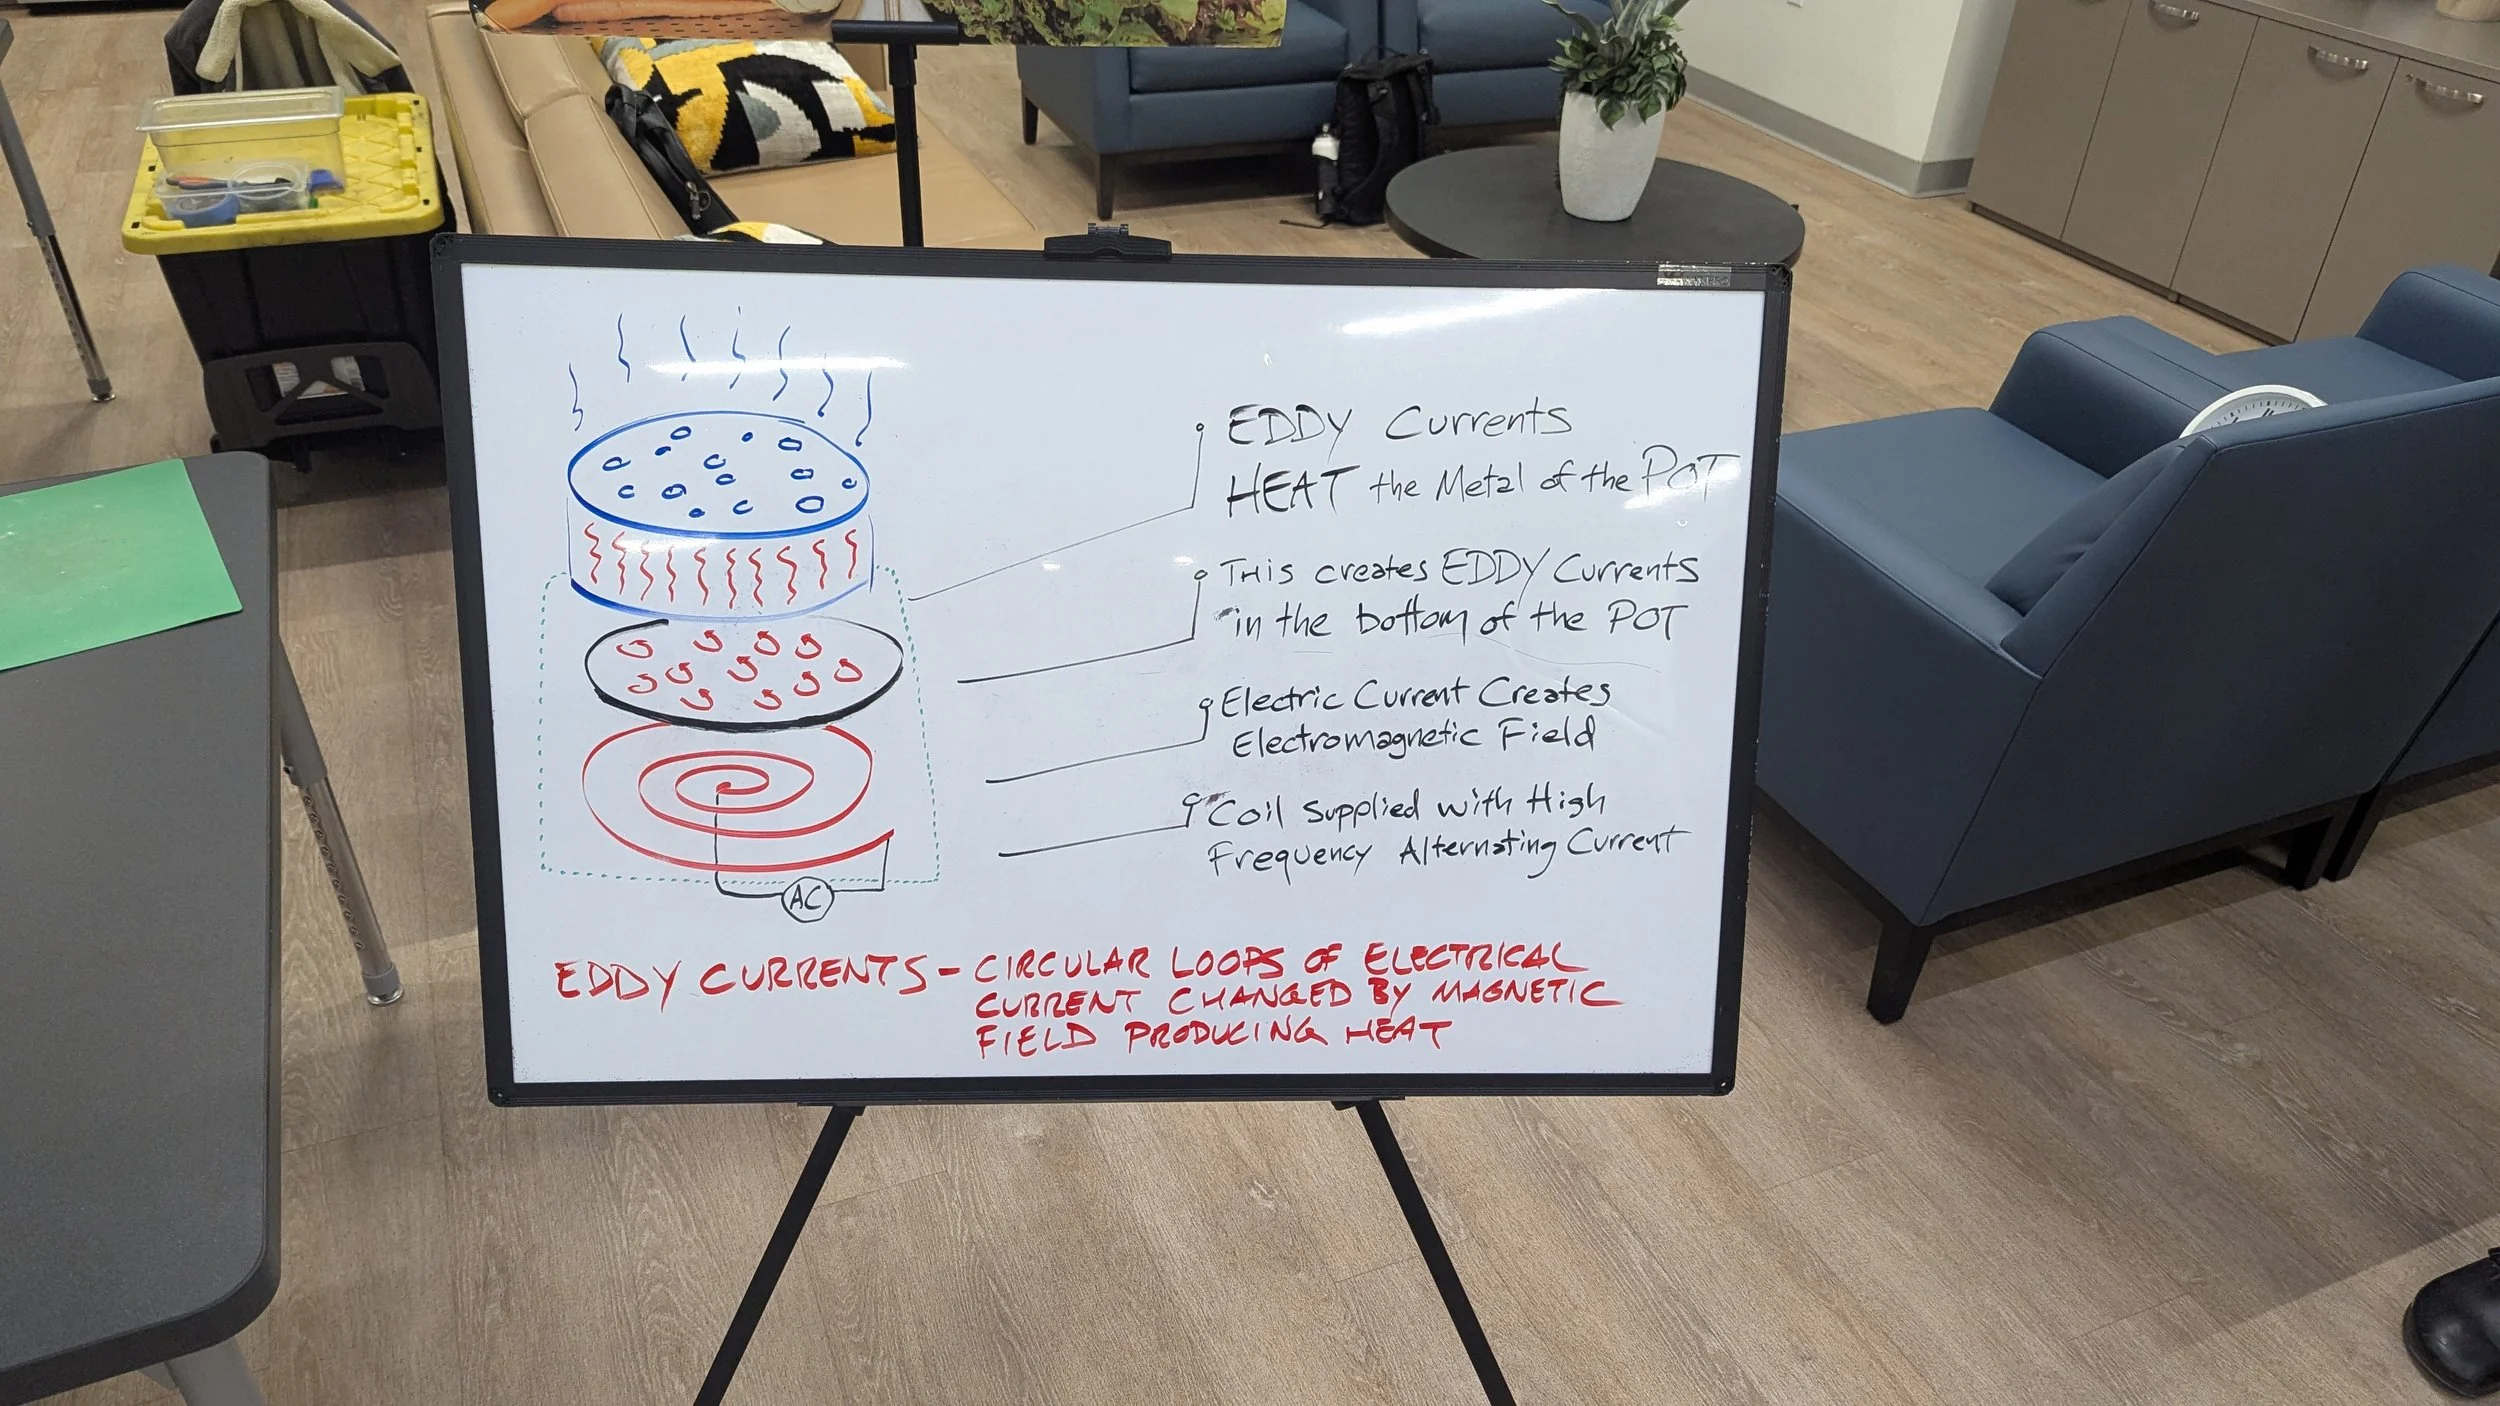 EDDY Currents
HEAT the Metal of the POT
This creates EDDY Currents
in the bottom of the POT
Electric Current Creates
Electromagnetic Field
Coil Supplied with High
Frequency Alternating Current
AC
EDDY CURRENTS - CIRCULAR LOOPS OF ELECTRICAL
CURRENT CHANGED BY MAGNETIC
FIELD PRODUCING HEAT